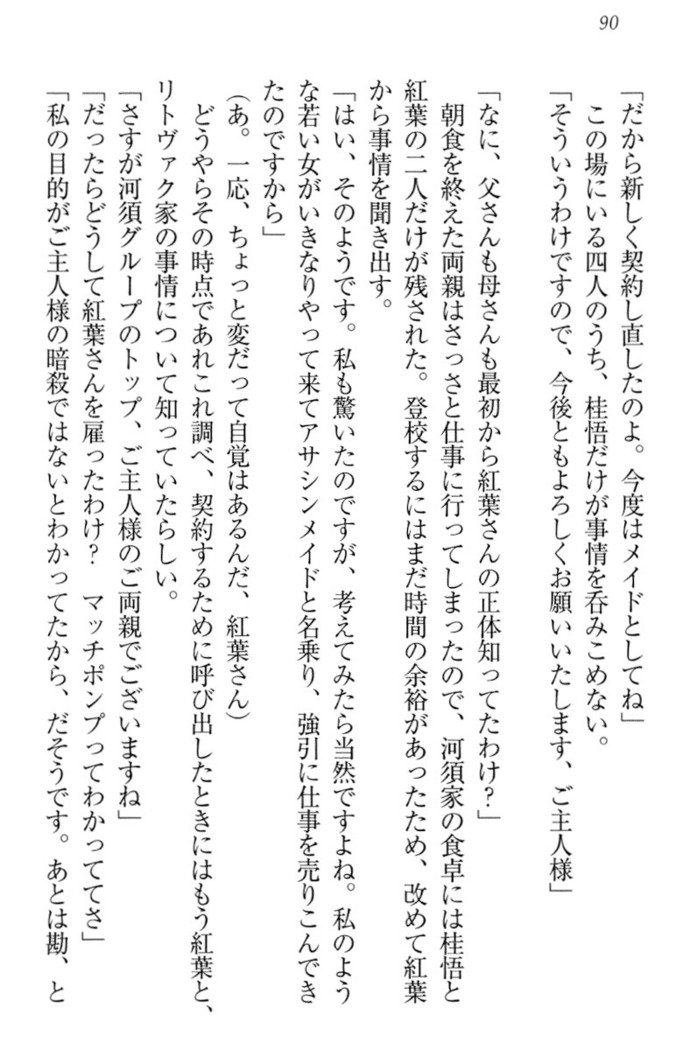 90
「だから新しく契約し直したのよ。今度はメイドとしてね」
この場にいる四人のうち、桂悟だけが事情を呑みこめない。
「そういうわけですので、今後ともよろしくお願いいたします、ご主人様」
「なに、父さんも母さんも最初から紅葉さんの正体知ってたわけ？」
朝食を終えた両親はさっさと仕事に行ってしまったので、河須家の食卓には桂悟と
紅葉の二人だけが残された。登校するにはまだ時間の余裕があったため、改めて紅葉
から事情を聞き出す。
「はい、そのようです。私も驚いたのですが、考えてみたら当然ですよね。私のよう
な若い女がいきなりやって来てアサシンメイドと名乗り、強引に仕事を売りこんでき
たのですから」
（あ。一応、ちょっと変だって自覚はあるんだ、紅葉さん）
どうやらその時点であれこれ調べ、契約するために呼び出したときにはもう紅葉と、
リトヴァク家の事情について知っていたらしい。
「さすが河須グループのトップ、ご主人様のご両親でございますね」
「だったらどうして紅葉さんを雇ったわけ？　マッチポンプってわかっててさ」
「私の目的がご主人様の暗殺ではないとわかってたから、だそうです。あとは勘、と